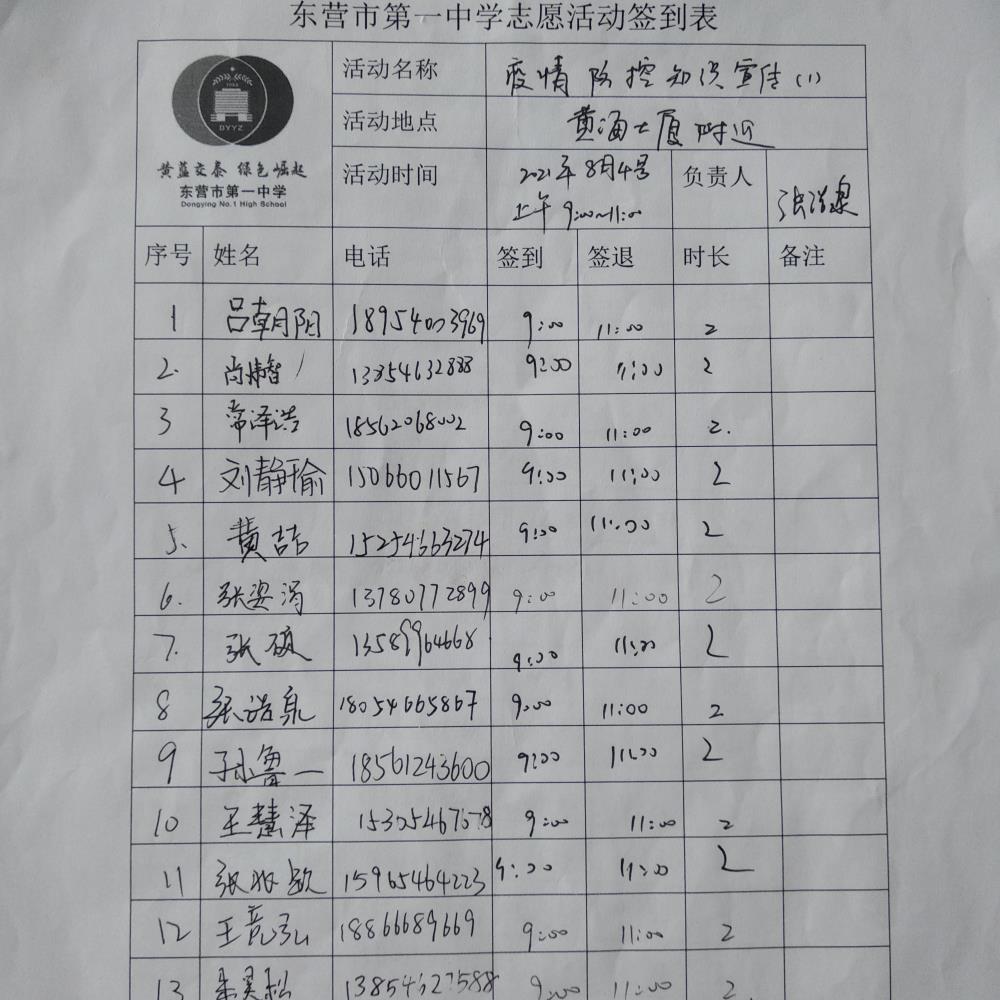 东营市第一中学志愿活动签到表
活动名称 疫情防控知识宣传(1)
DYYZ
活动地点 黄海大厦附近
黄蓝交泰 绿色崛起
东营市第一中学
Dongying No.1 High School
活动时间 2021年8月4号 上午9:00~11:00 负责人 张浩泉
序号 姓名 电话 签到 签退 时长 备注
1 吕朝阳 18954003969 9:00 11:00 2
2. 尚 智 13854632888 9:00 11:00 2
3 常泽浩 18562068002 9:00 11:00 2.
4 刘静瑜 15066011567 9:00 11:00 2
5. 黄喆 15254663274 9:00 11:00 2
6. 张姿 13780772899 9:00 11:00 2
7. 张硕 13589964668 9:00 11:00 2
8 张浩泉 18054665867 9:00 11:00 2
9 孙鲁一 18561243600 9:00 11:00 2
10 王慧泽 9:00 11:00 2
11 张 15965464223 9:00 11:00 2
12 王竞弘 18866689669 9:00 11:00 2
13 13854627588 9:00 11:00 2.